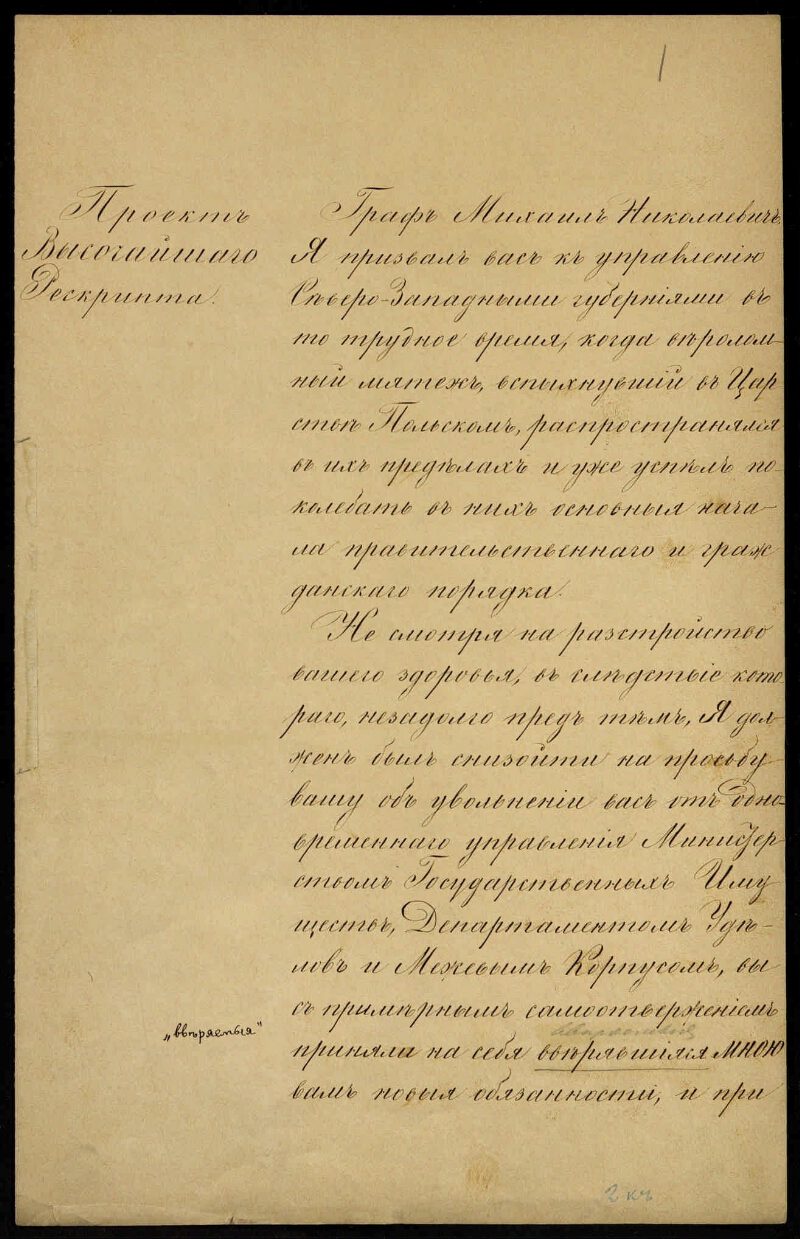 1
Проектъ
Высочайшаго
Рескрипта.
Графъ Михаилъ Николаевичъ.
Я призвалъ васъ къ управленію
Сѣверо-Западными губерніями въ
то трудное время, когда вѣролом-
ный мятежъ, вспыхнувшій въ Цар
ствѣ Польскомъ, распространялся
въ ихъ предѣлахъ и уже успѣлъ по-
колебать въ нихъ основныя нача-
ла правительственнаго и граж
данскаго порядка.
Не смотря на разстройство
вашего здоровья, въ слѣдствіе кото
раго, незадолго предъ тѣмъ, Я дол-
женъ былъ снизойти на просьбу
вашу объ увольненіи васъ отъ одно-
временнаго управленія Министер
ствомъ Государственныхъ Иму
ществъ, Департаментомъ Удѣ-
ловъ и Межевымъ Корпусомъ, вы
съ примѣрнымъ самоотверженіемъ
„ввѣряемыя"
приняли на себя ввѣрявшіяся МНОЮ
вамъ новыя обязанности, и при
2 къ